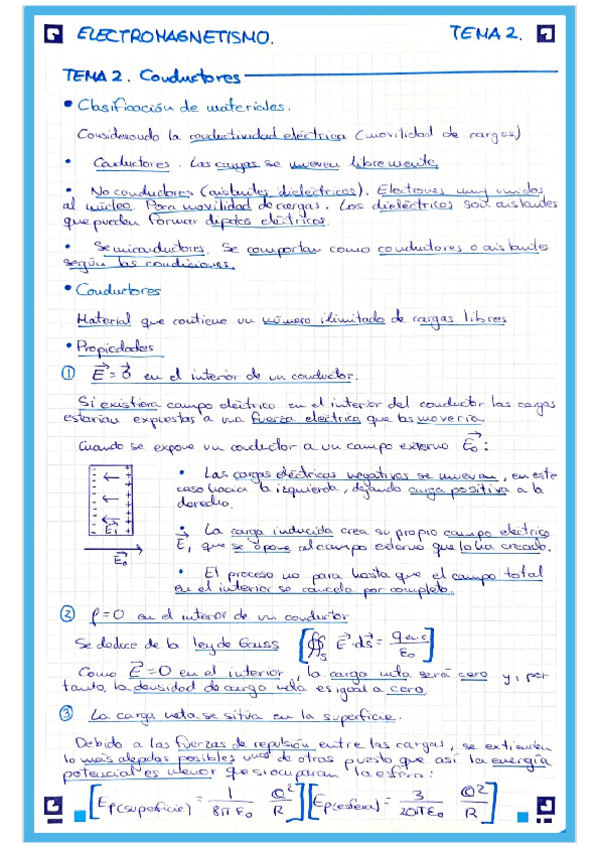 ELECTROMAGNETISMO. TEMA 2.
TEMA 2. Conductores
• Clasificación de materiales.
Considerando la conductividad eléctrica (movilidad de cargas)
• Conductores. Las cargas se mueven libremente.
• No conductores (aislantes, dieléctricos). Electrones muy unidos
al núcleo. Poca movilidad de cargas. Los dieléctricos son aislantes
que pueden formar dipolos eléctricos.
• Semiconductores. Se comportan como conductores o aislantes
según las condiciones.
• Conductores
Material que contiene un número ilimitado de cargas libres
• Propiedades
① E⃗ = 0⃗ en el interior de un conductor.
Si existiera campo eléctrico en el interior del conductor las cargas
estarían expuestas a una fuerza eléctrica que las movería.
Cuando se expone un conductor a un campo externo E⃗₀ :
• Las cargas eléctricas negativas se mueven, en este
caso hacia la izquierda, dejando carga positiva a la
derecha.
• La carga inducida crea su propio campo eléctrico
E⃗₁, que se opone al campo externo que lo ha creado.
• El proceso no para hasta que el campo total
en el interior se cancela por completo.
E⃗₁
E⃗₀
② ρ=0 en el interior de un conductor
Se deduce de la ley de Gauss [∯s E⃗·dS⃗ = q enc / ε₀]
Como E⃗=0 en el interior, la carga neta será cero y, por
tanto, la densidad de carga neta es igual a cero.
③ La carga neta se sitúa en la superficie.
Debido a las fuerzas de repulsión entre las cargas, se extienden
lo más alejadas posibles unas de otras puesto que así la energía
potencial es menor que si ocuparan la esfera:
[Ep(superficie) = 1/8πε₀ Q²/R] [Ep(esfera) = 3/20πε₀ Q²/R]